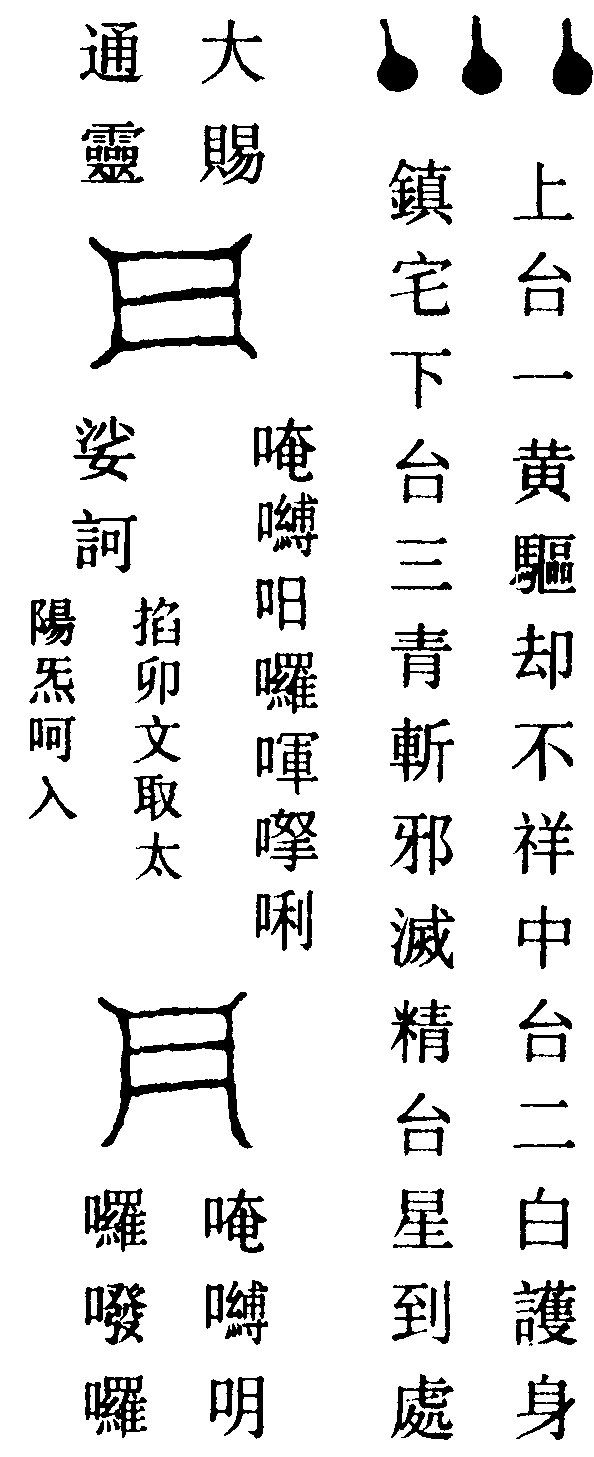 上台一黄驅却不祥中台二白護身
鎮宅下台三青斬邪滅精台星到處
大賜
通靈
唵嚩囉喗唎
娑訶
掐卯文取太
陽炁呵入
唵嚩
囉囉